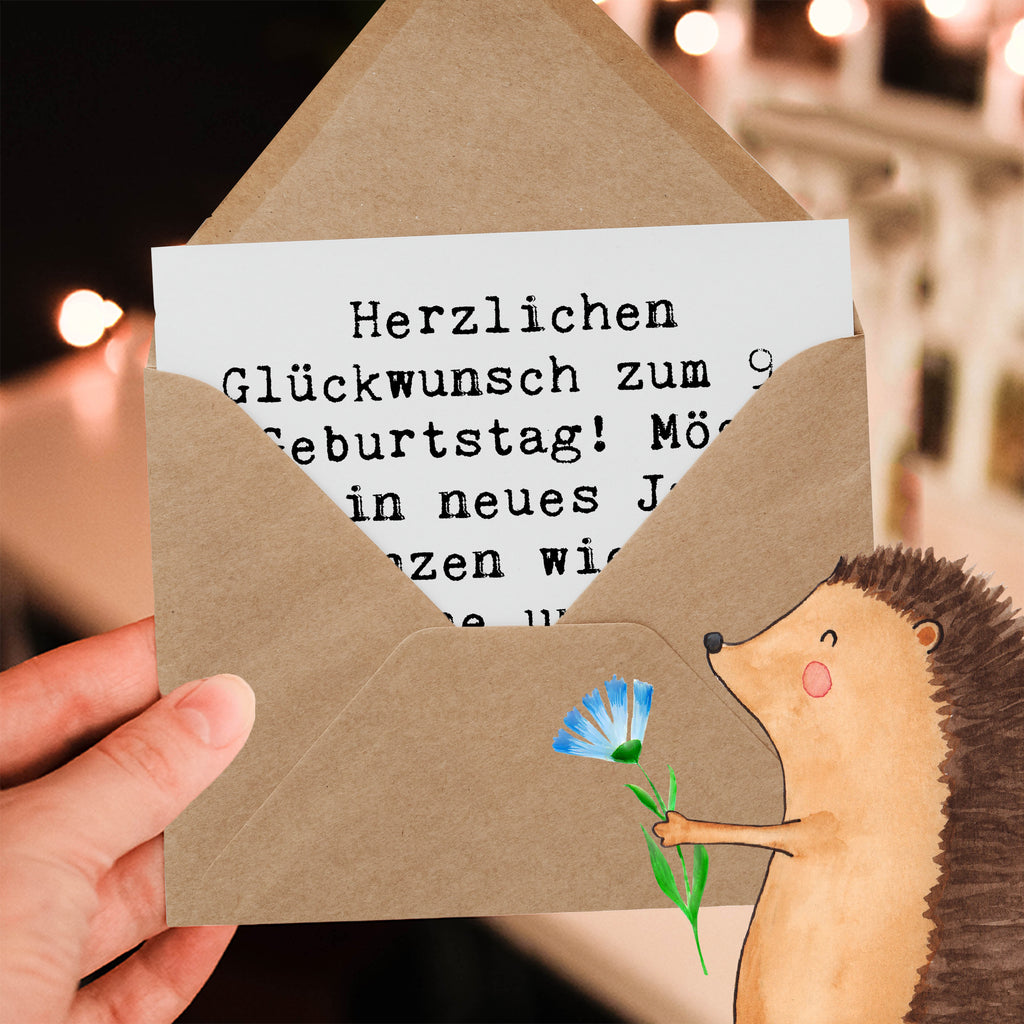 Herzlichen
Glückwunsch zum 9
Geburtstag! Mög
in neues J
nzen wie